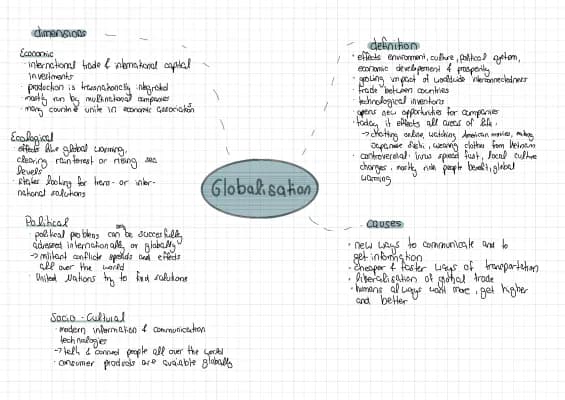 dimensions
Economic
· international trade & international capital
investments
· production is transnationally integrated
· mostly run by multinational companies
· many countrie unite in economic association
Ecological
· effects like global warming,
clearing rainforest or rising sea
levels
· states looking for trans- or inter-
national solutions
Political
· political problems can only be succesfully
adressed internationally or globally
→ militant conflicts spreads and effects
all over the world
· United Nations try to find solutions
Socio-Cultural
· modern information & communication
technologies
→ talk & connect people all over the world
· consumer products are avaiable globally
Globalisation
definition
· effects environment, culture, political system,
economic developement & prosperity
· growing impact of worldwide interconnectedness
· trade between countries
· technological inventions
· opens new opportunities for companies
· today it effects all areas of life.
→ chatting online, watching American movies, eating
Japanese Sushi, wearing clothes from Vietnam
· controversal: virus spread fast, local culture
changes, mostly rich people benefit, global
warming
causes
· new ways to communicate and to
get information
· cheaper & faster ways of transportation
· liberalisation of global trade
· humans always want more, get higher
and better